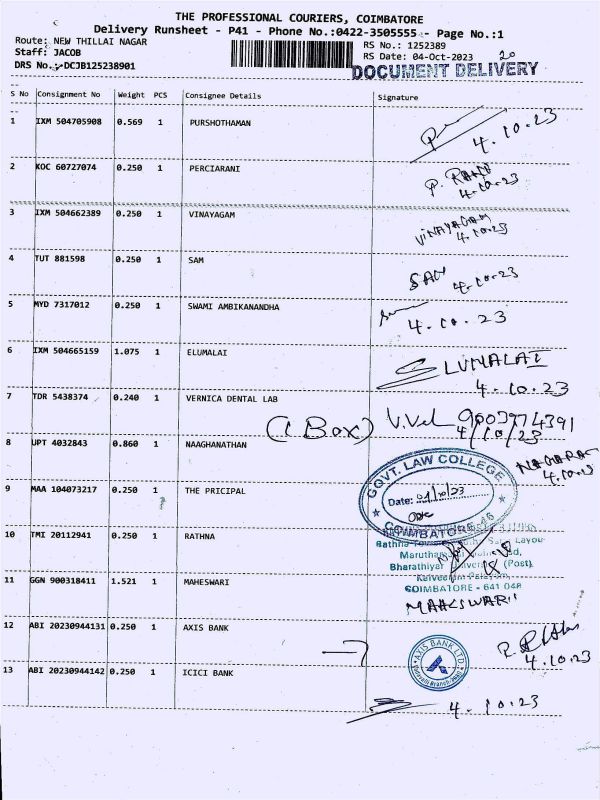 THE PROFESSIONAL COURIERS, COIMBATORE
Delivery Runsheet - P41 - Phone No.:0422-3505555 - Page No.:1
Route: NEW THILLAI NAGAR
Staff: JACOB
DRS No.: DCJB125238901
RS No.: 1252389
RS Date: 04-Oct-2023 20
DOCUMENT DELIVERY
S No Consignment No Weight PCS Consignee Details Signature
1 IXM 504705908 0.569 1 PURSHOTHAMAN 4.10.23
2 KOC 60727074 0.250 1 PERCIARANI P. RANI
4.10.23
3 IXM 504662389 0.250 1 VINAYAGAM VINAYAGAM
4.10.23
4 TUT 881598 0.250 1 SAM SAM 4.10.23
5 MYD 7317012 0.250 1 SWAMI AMBIKANANDHA 4.10.23
6 IXM 504665159 1.075 1 ELUMALAI ELUMALAI
4.10.23
7 TDR 5438374 0.240 1 VERNICA DENTAL LAB
(1 Box) V.Vel 9003974391
4/10/23
8 UPT 4032843 0.860 1 NAAGHANATHAN NAGARAJ
4.10.23
GOVT. LAW COLLEGE
9 MAA 104073217 0.250 1 THE PRICIPAL Date: 04/10/23
COIMBATORE-46
10 TMI 20112941 0.250 1 RATHNA
Layou
Bharathiyar University (Post),
COIMBATORE - 641 046
11 GGN 900318411 1.521 1 MAHESWARI MAHESWARI
12 ABI 20230944131 0.250 1 AXIS BANK AXIS BANK LTD.
4.10.23
13 ABI 20230944142 0.250 1 ICICI BANK
4.10.23